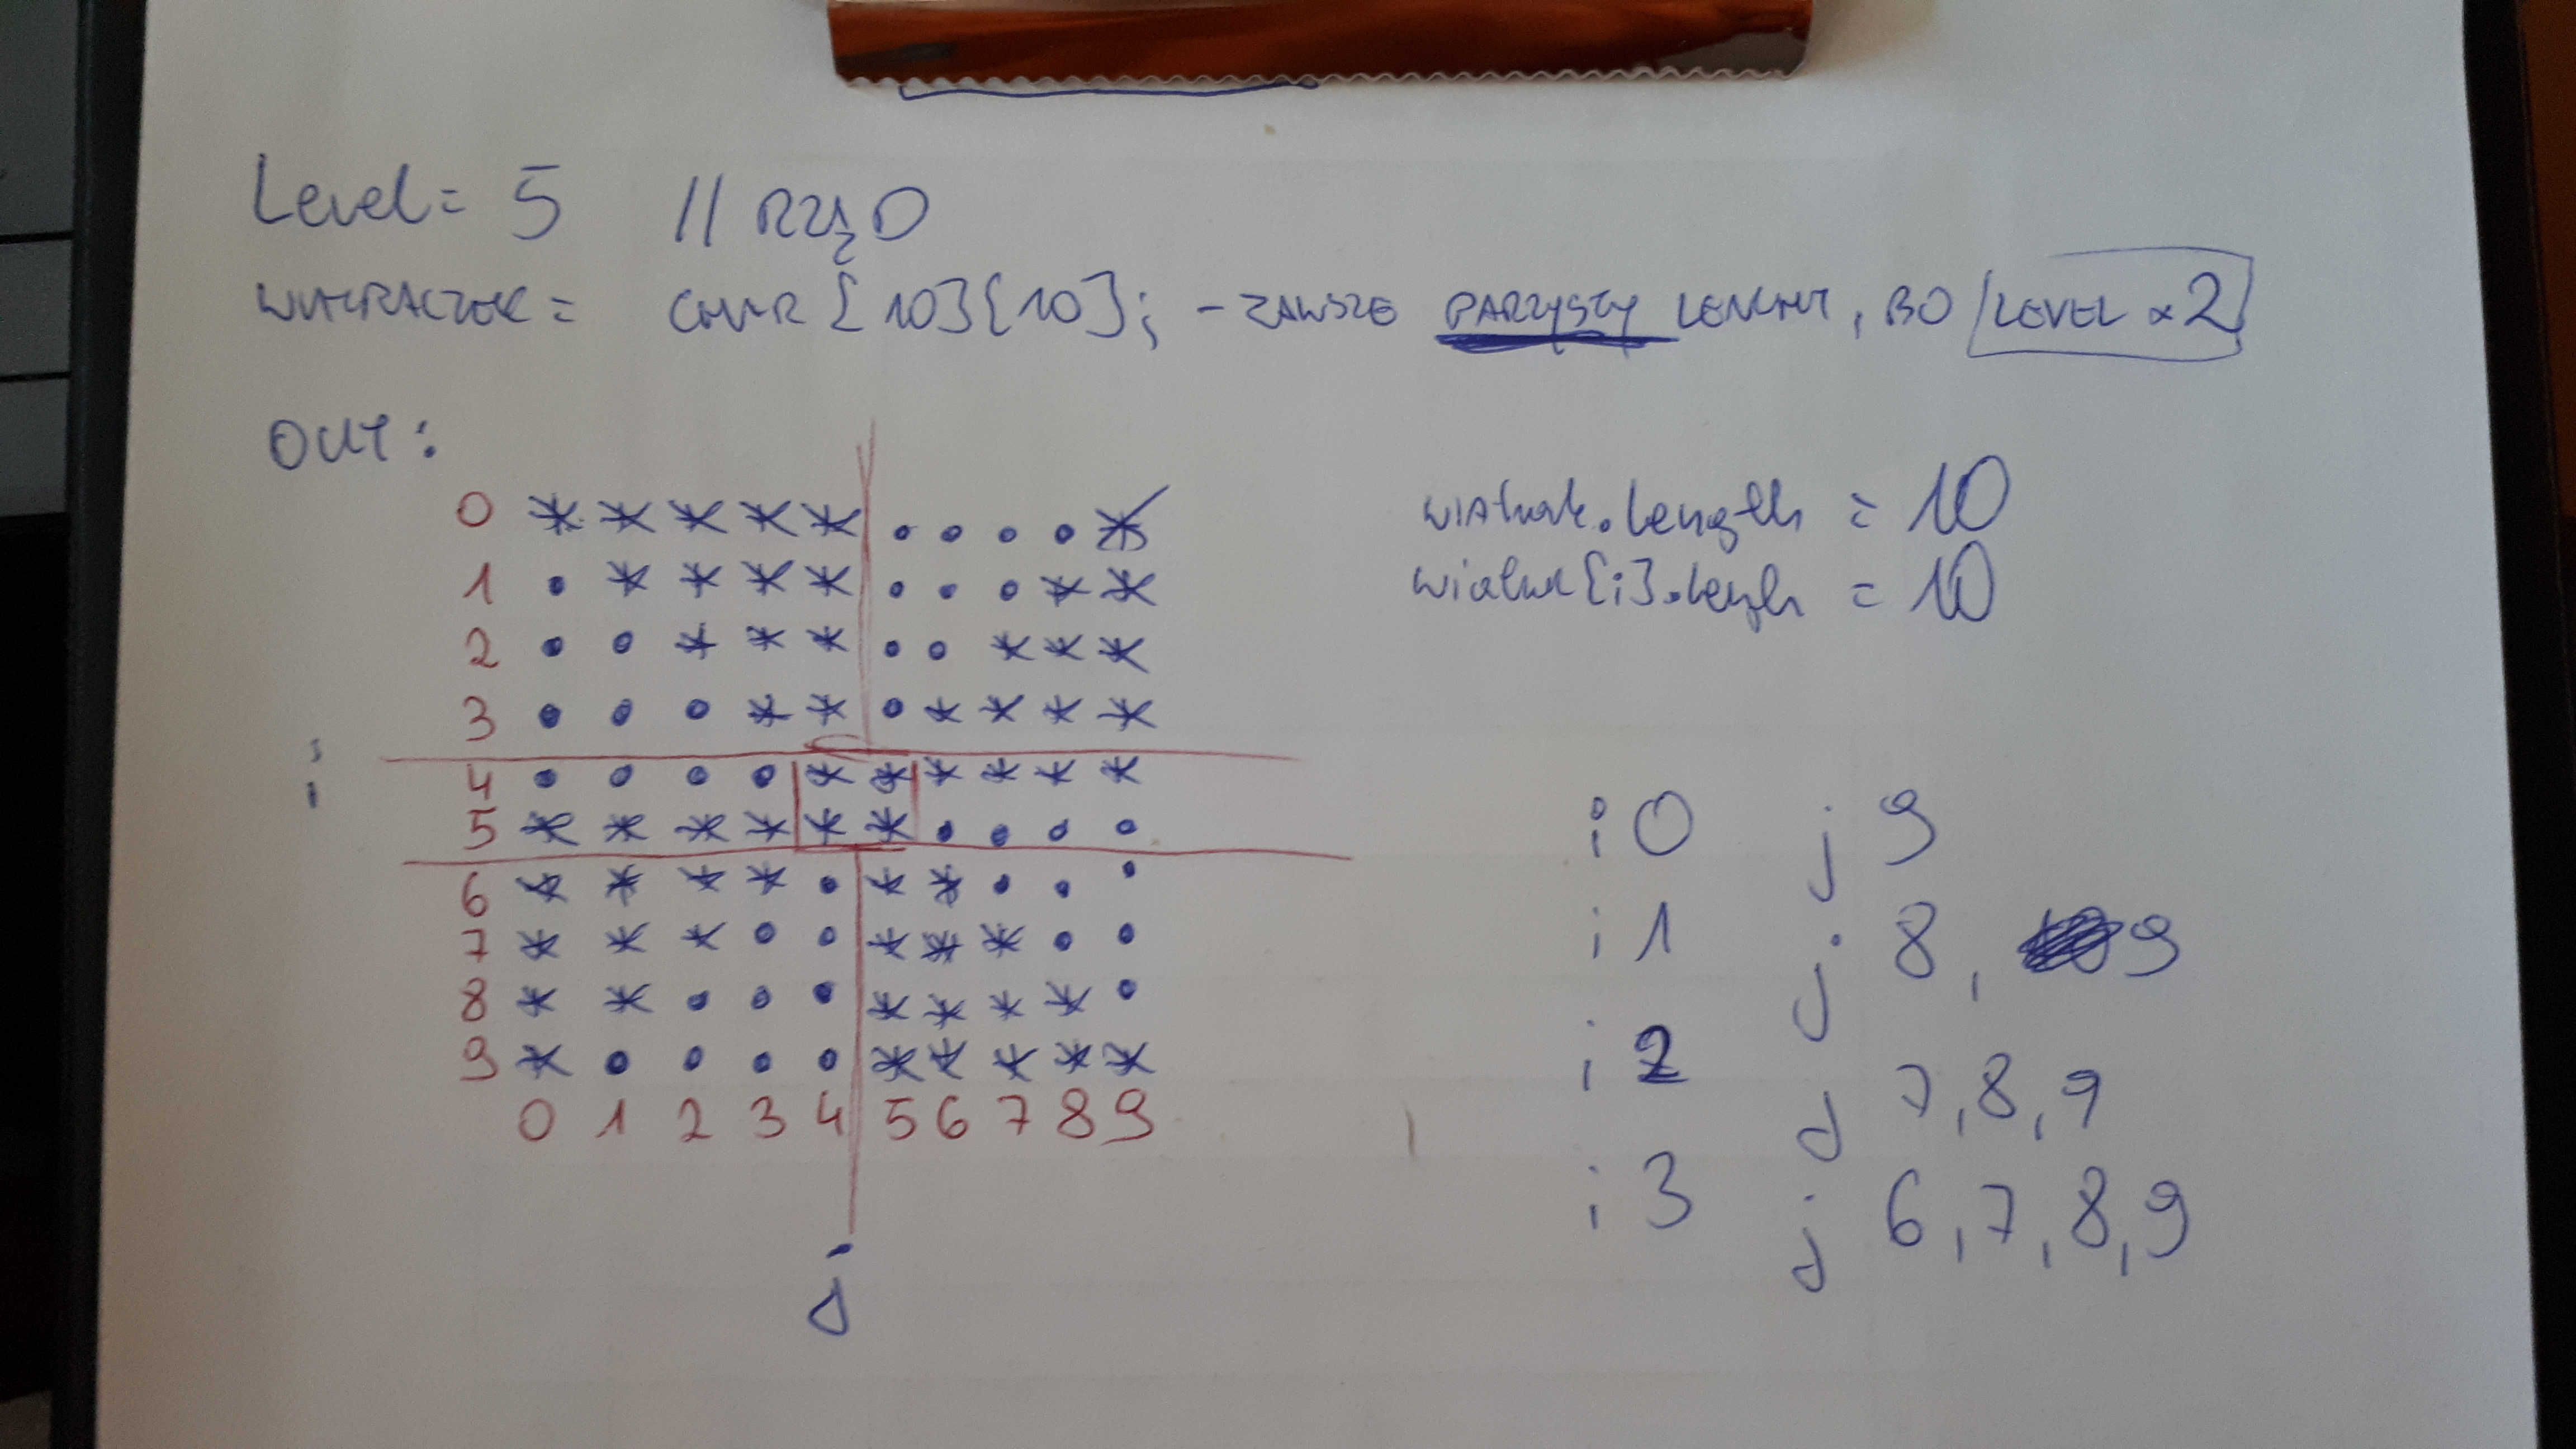 Level = 5 // RZĄD
WIATRACZEK = CHAR [10][10]; - ZAWSZE PARZYSTY LENGHT, BO LEVEL x 2
OUT:
0 * * * * * . . . . *
1 . * * * * . . . * *
2 . . * * * . . * * *
3 . . . * * . * * * *
4 . . . . * * * * * *
5 * * * * * * . . . .
6 * * * * . * * . . .
7 * * * . . * * * . .
8 * * . . . * * * * .
9 * . . . . * * * * *
0 1 2 3 4 5 6 7 8 9
i
j
wiatrak.length = 10
wiatrak[i].length = 10
i 0 j 9
i 1 j 8, 9
i 2 j 7, 8, 9
i 3 j 6, 7, 8, 9